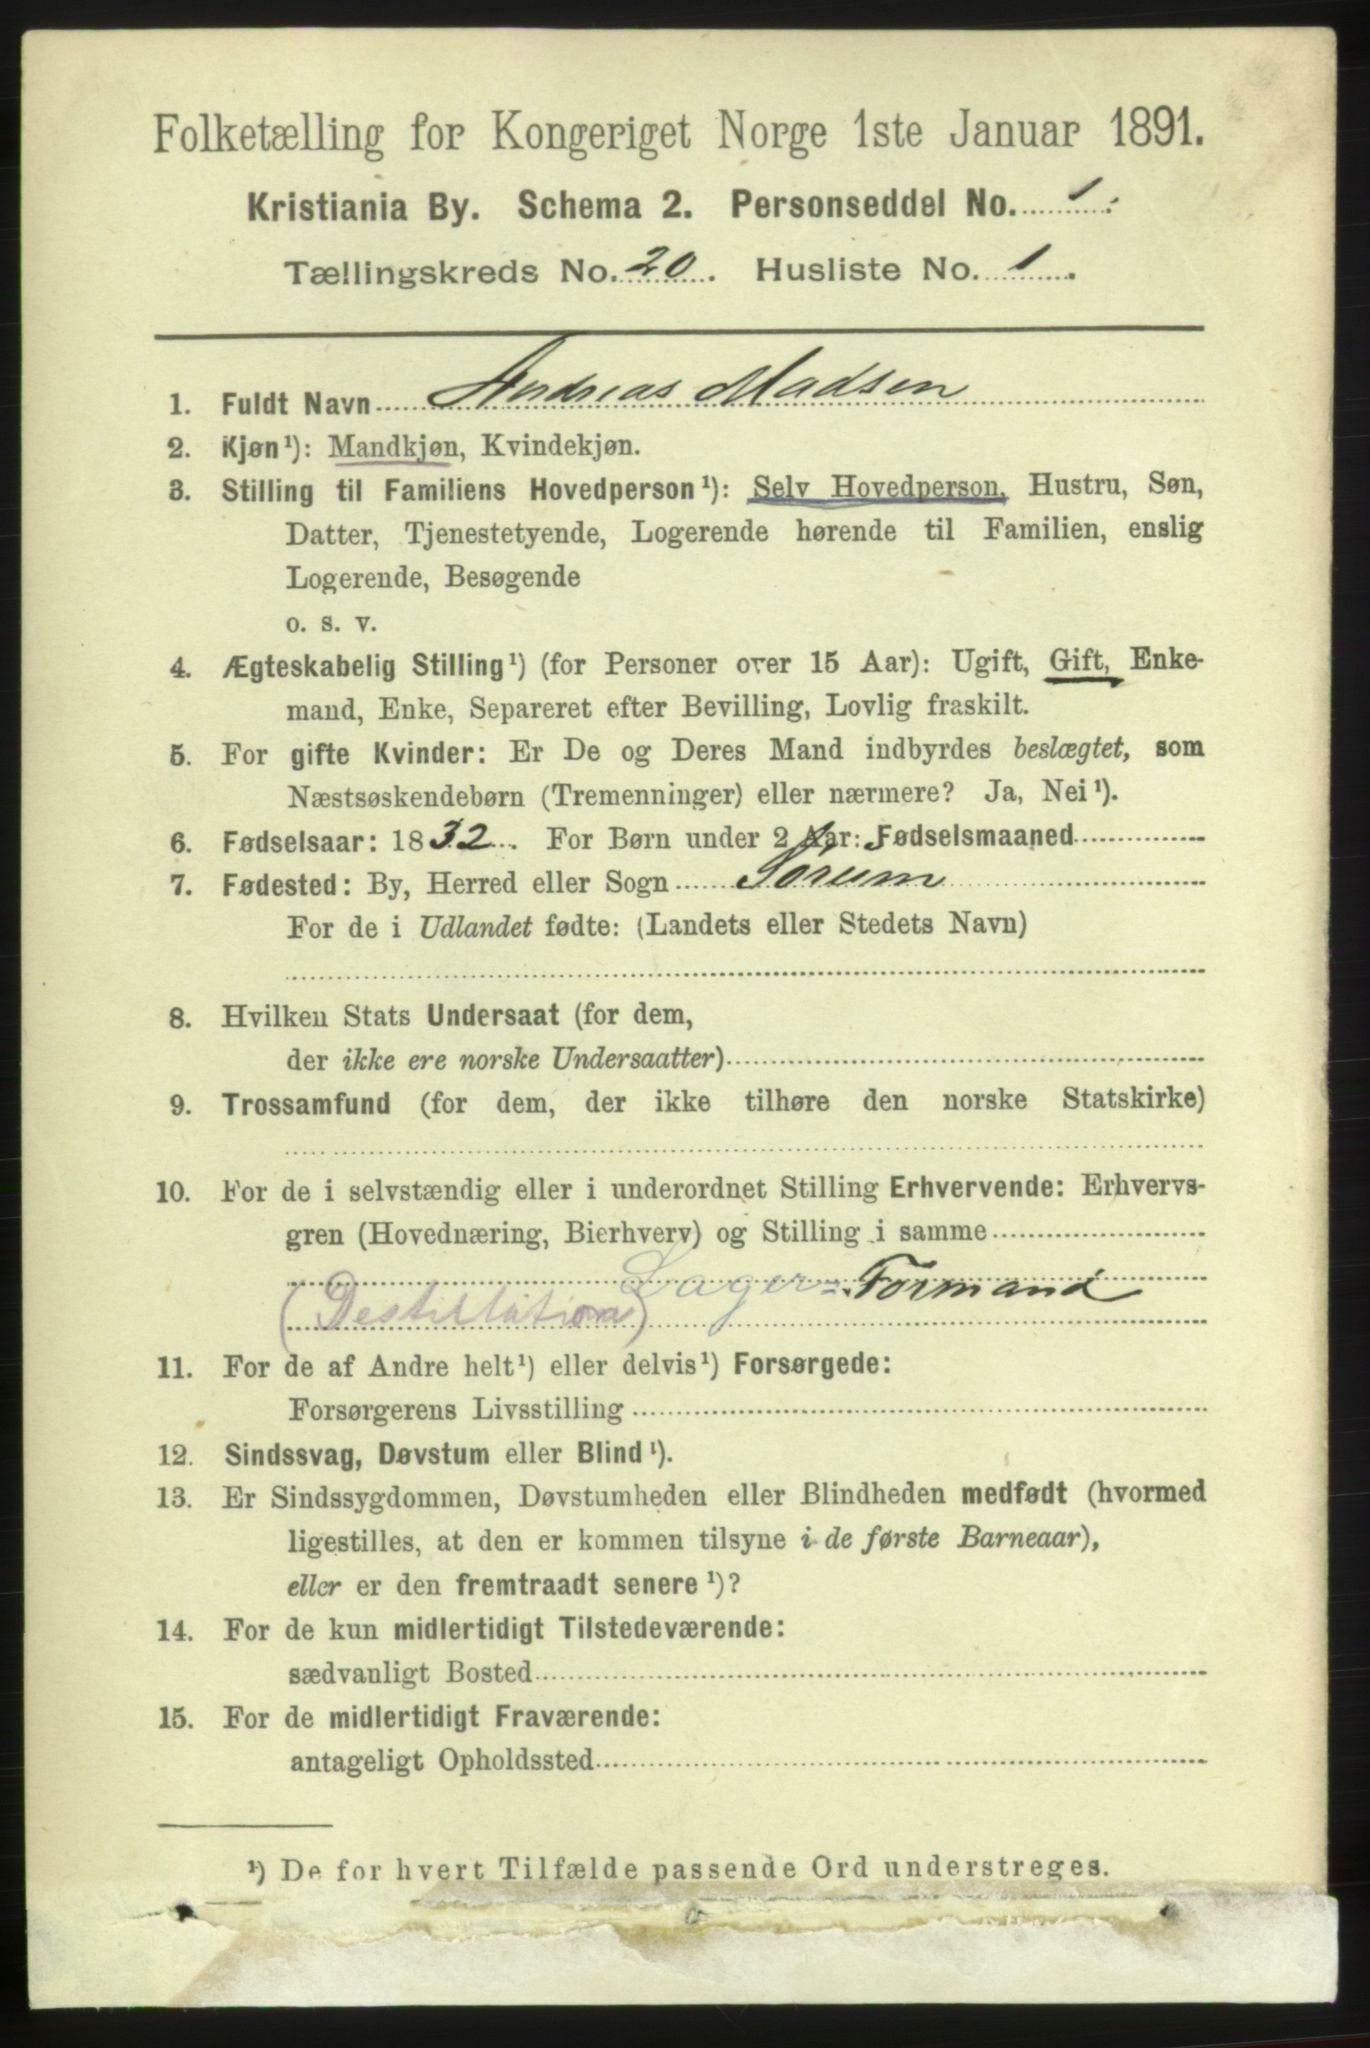 Folketælling for Kongeriget Norge 1ste Januar 1891.
Kristiania By. Schema 2. Personseddel No. 1.
Tællingskreds No. 20. Husliste No. 1.
1. Fuldt Navn Andreas Madsen
2. Kjøn¹): Mandkjøn, Kvindekjøn.
3. Stilling til Familiens Hovedperson¹): Selv Hovedperson, Hustru, Søn,
Datter, Tjenestetyende, Logerende hørende til Familien, enslig
Logerende, Besøgende
o. s. v.
4. Ægteskabelig Stilling¹) (for Personer over 15 Aar): Ugift, Gift, Enke-
mand, Enke, Separeret efter Bevilling, Lovlig fraskilt.
5. For gifte Kvinder: Er De og Deres Mand indbyrdes beslægtet, som
Næstsøskendebørn (Tremenninger) eller nærmere? Ja, Nei¹).
6. Fødselsaar: 1832. For Børn under 2 Aar: Fødselsmaaned
7. Fødested: By, Herred eller Sogn Sørum
For de i Udlandet fødte: (Landets eller Stedets Navn)
8. Hvilken Stats Undersaat (for dem,
der ikke ere norske Undersaatter)
9. Trossamfund (for dem, der ikke tilhøre den norske Statskirke)
10. For de i selvstændig eller i underordnet Stilling Erhvervende: Erhvervs-
gren (Hovednæring, Bierhverv) og Stilling i samme
Lager=Formand
(Destillation)
11. For de af Andre helt¹) eller delvis¹) Forsørgede:
Forsørgerens Livsstilling
12. Sindssvag, Døvstum eller Blind¹).
13. Er Sindssygdommen, Døvstumheden eller Blindheden medfødt (hvormed
ligestilles, at den er kommen tilsyne i de første Barneaar),
eller er den fremtraadt senere¹)?
14. For de kun midlertidigt Tilstedeværende:
sædvanligt Bosted
15. For de midlertidigt Fraværende:
antageligt Opholdssted
¹) De for hvert Tilfælde passende Ord understreges.